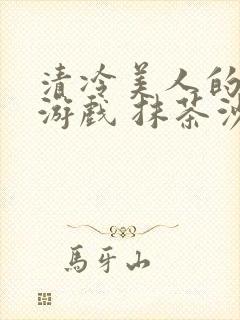 清冷美人的
游戏 抹茶沙
馬牙山